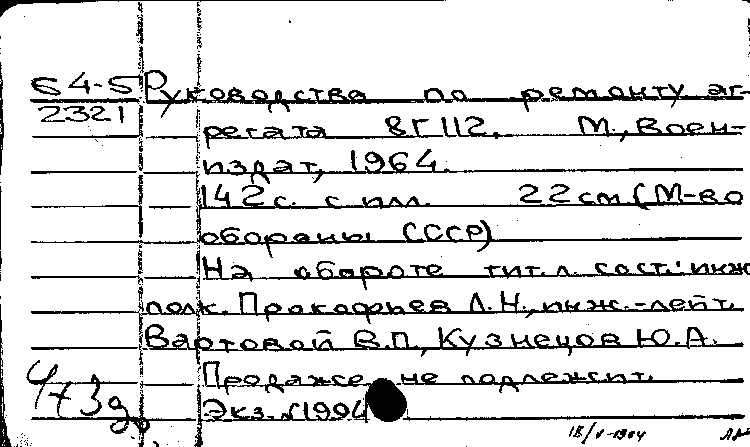 64-5 Руководства по ремонту аг-
2321
регата 8Г112. М., Воен-
издат, 1964.
142с. с илл. 22см (М-во
обороны СССР)
На обороте тит. л. сост.: инж
полк. Прокофьев Л.Н., инж.-лейт.
Вартовой В.П., Кузнецов Ю.А.
Продаже не подлежит.
Экз. №1904